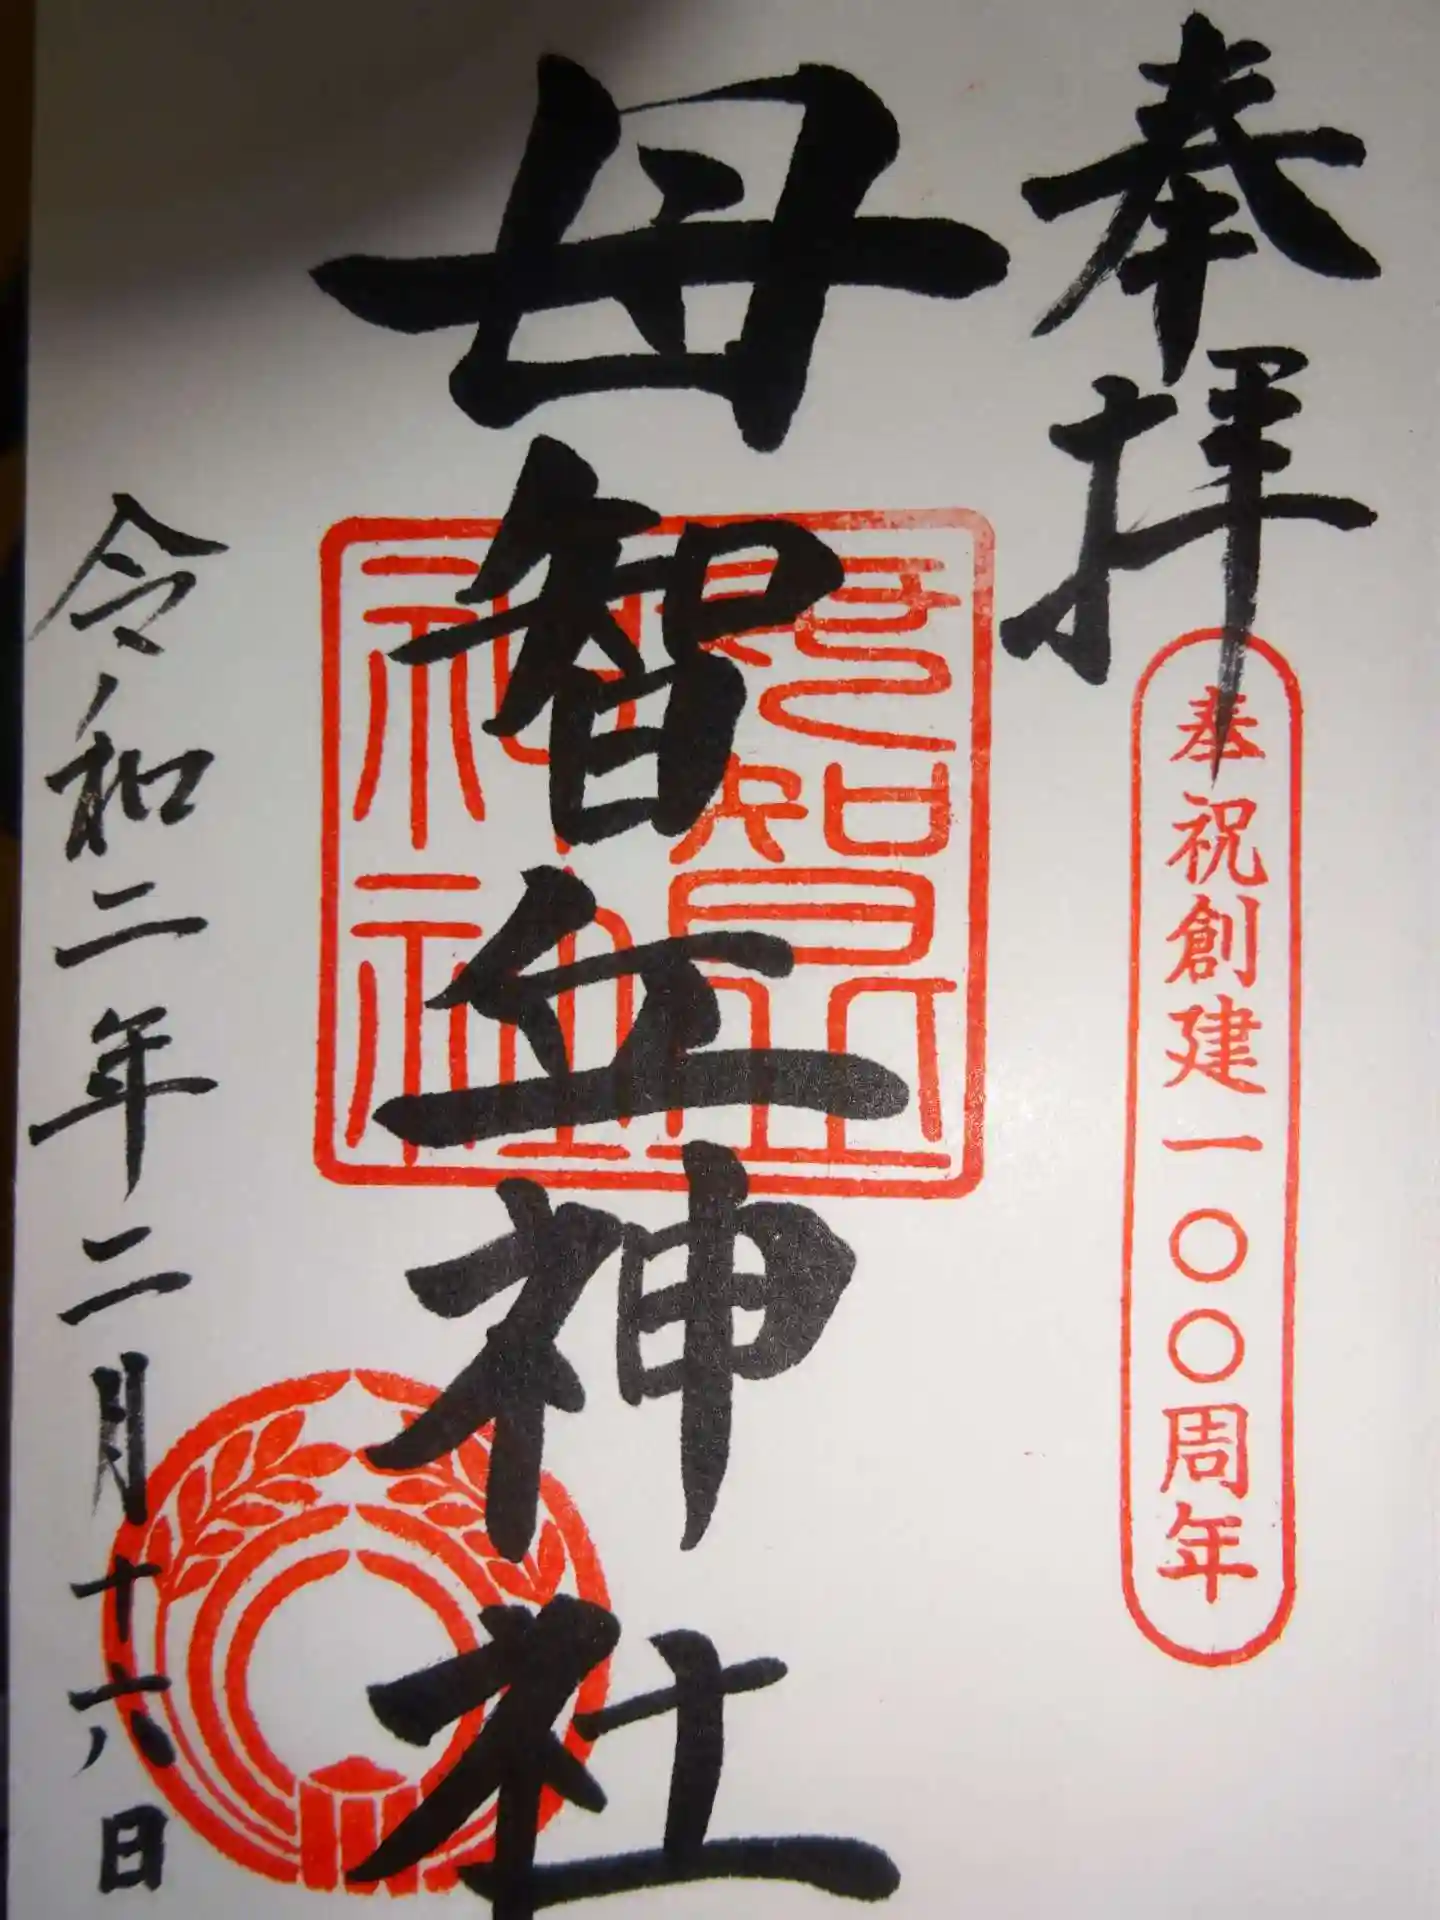 奉拝
奉祝創建一〇〇周年
母智丘神社
母智丘
神社
令和二年二月十六日